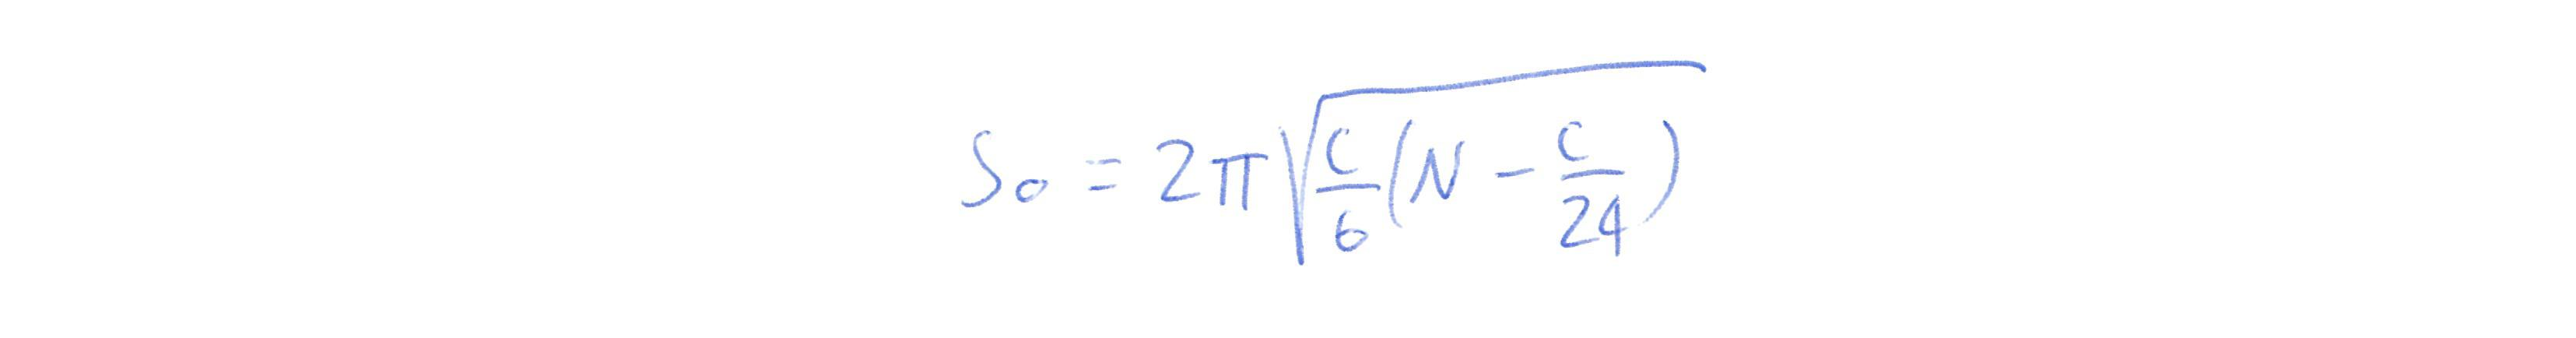 $S_0 = 2\pi\sqrt{\frac{c}{6}(N - \frac{c}{24})}$